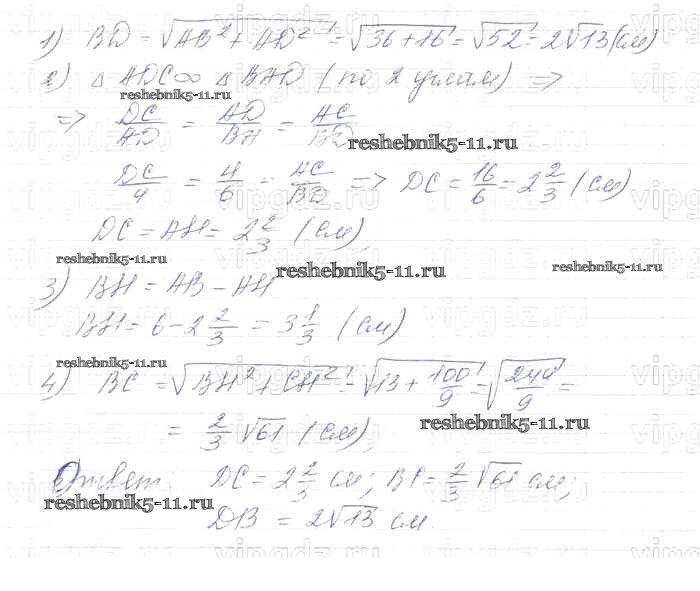 1) BD = √AB² + AD² = √36 + 16 = √52 = 2√13 (см)
2) △ ADC ∞ △ BAD (по 2 углам) ⇒
reshebnik5-11.ru
⇒ DC/AD = AD/BA = AC/BD
reshebnik5-11.ru
DC/4 = 4/6 = AC/BD ⇒ DC = 16/6 = 2 2/3 (см)
DC = AH = 2 2/3 (см)
reshebnik5-11.ru
reshebnik5-11.ru
reshebnik5-11.ru
3) BH = AB - AH
BH = 6 - 2 2/3 = 3 1/3 (см)
reshebnik5-11.ru
4) BC = √BH² + CH² = √13 + 100/9 = √244/9 =
reshebnik5-11.ru
= 2/3 √61 (см),
Ответ: DC = 2 2/3 см; BC = 2/3 √61 см;
reshebnik5-11.ru
DB = 2√13 см.